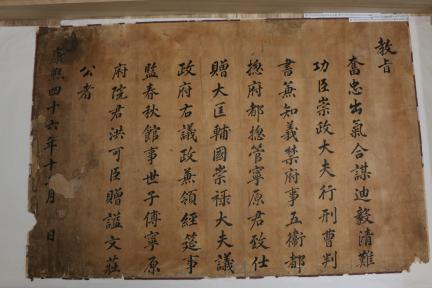 教旨
奮忠出氣合謀迪毅清難
功臣崇政大夫行刑曹判
書兼知義禁府事五衛都
摠府都摠管寧原君致仕
贈大匡輔國崇祿大夫議
政府右議政兼領經筵事
監春秋館事世子傅寧原
府院君洪可臣贈謚文莊
公者
康熙四十六年十一月 日